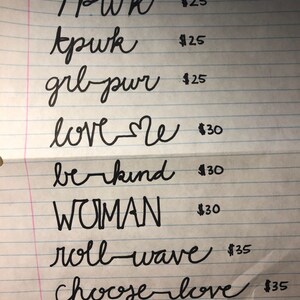 TPWK $25
tpwk $25
grl pwr $25
love me $30
be kind $30
WOMAN $30
roll wave $35
choose love $35